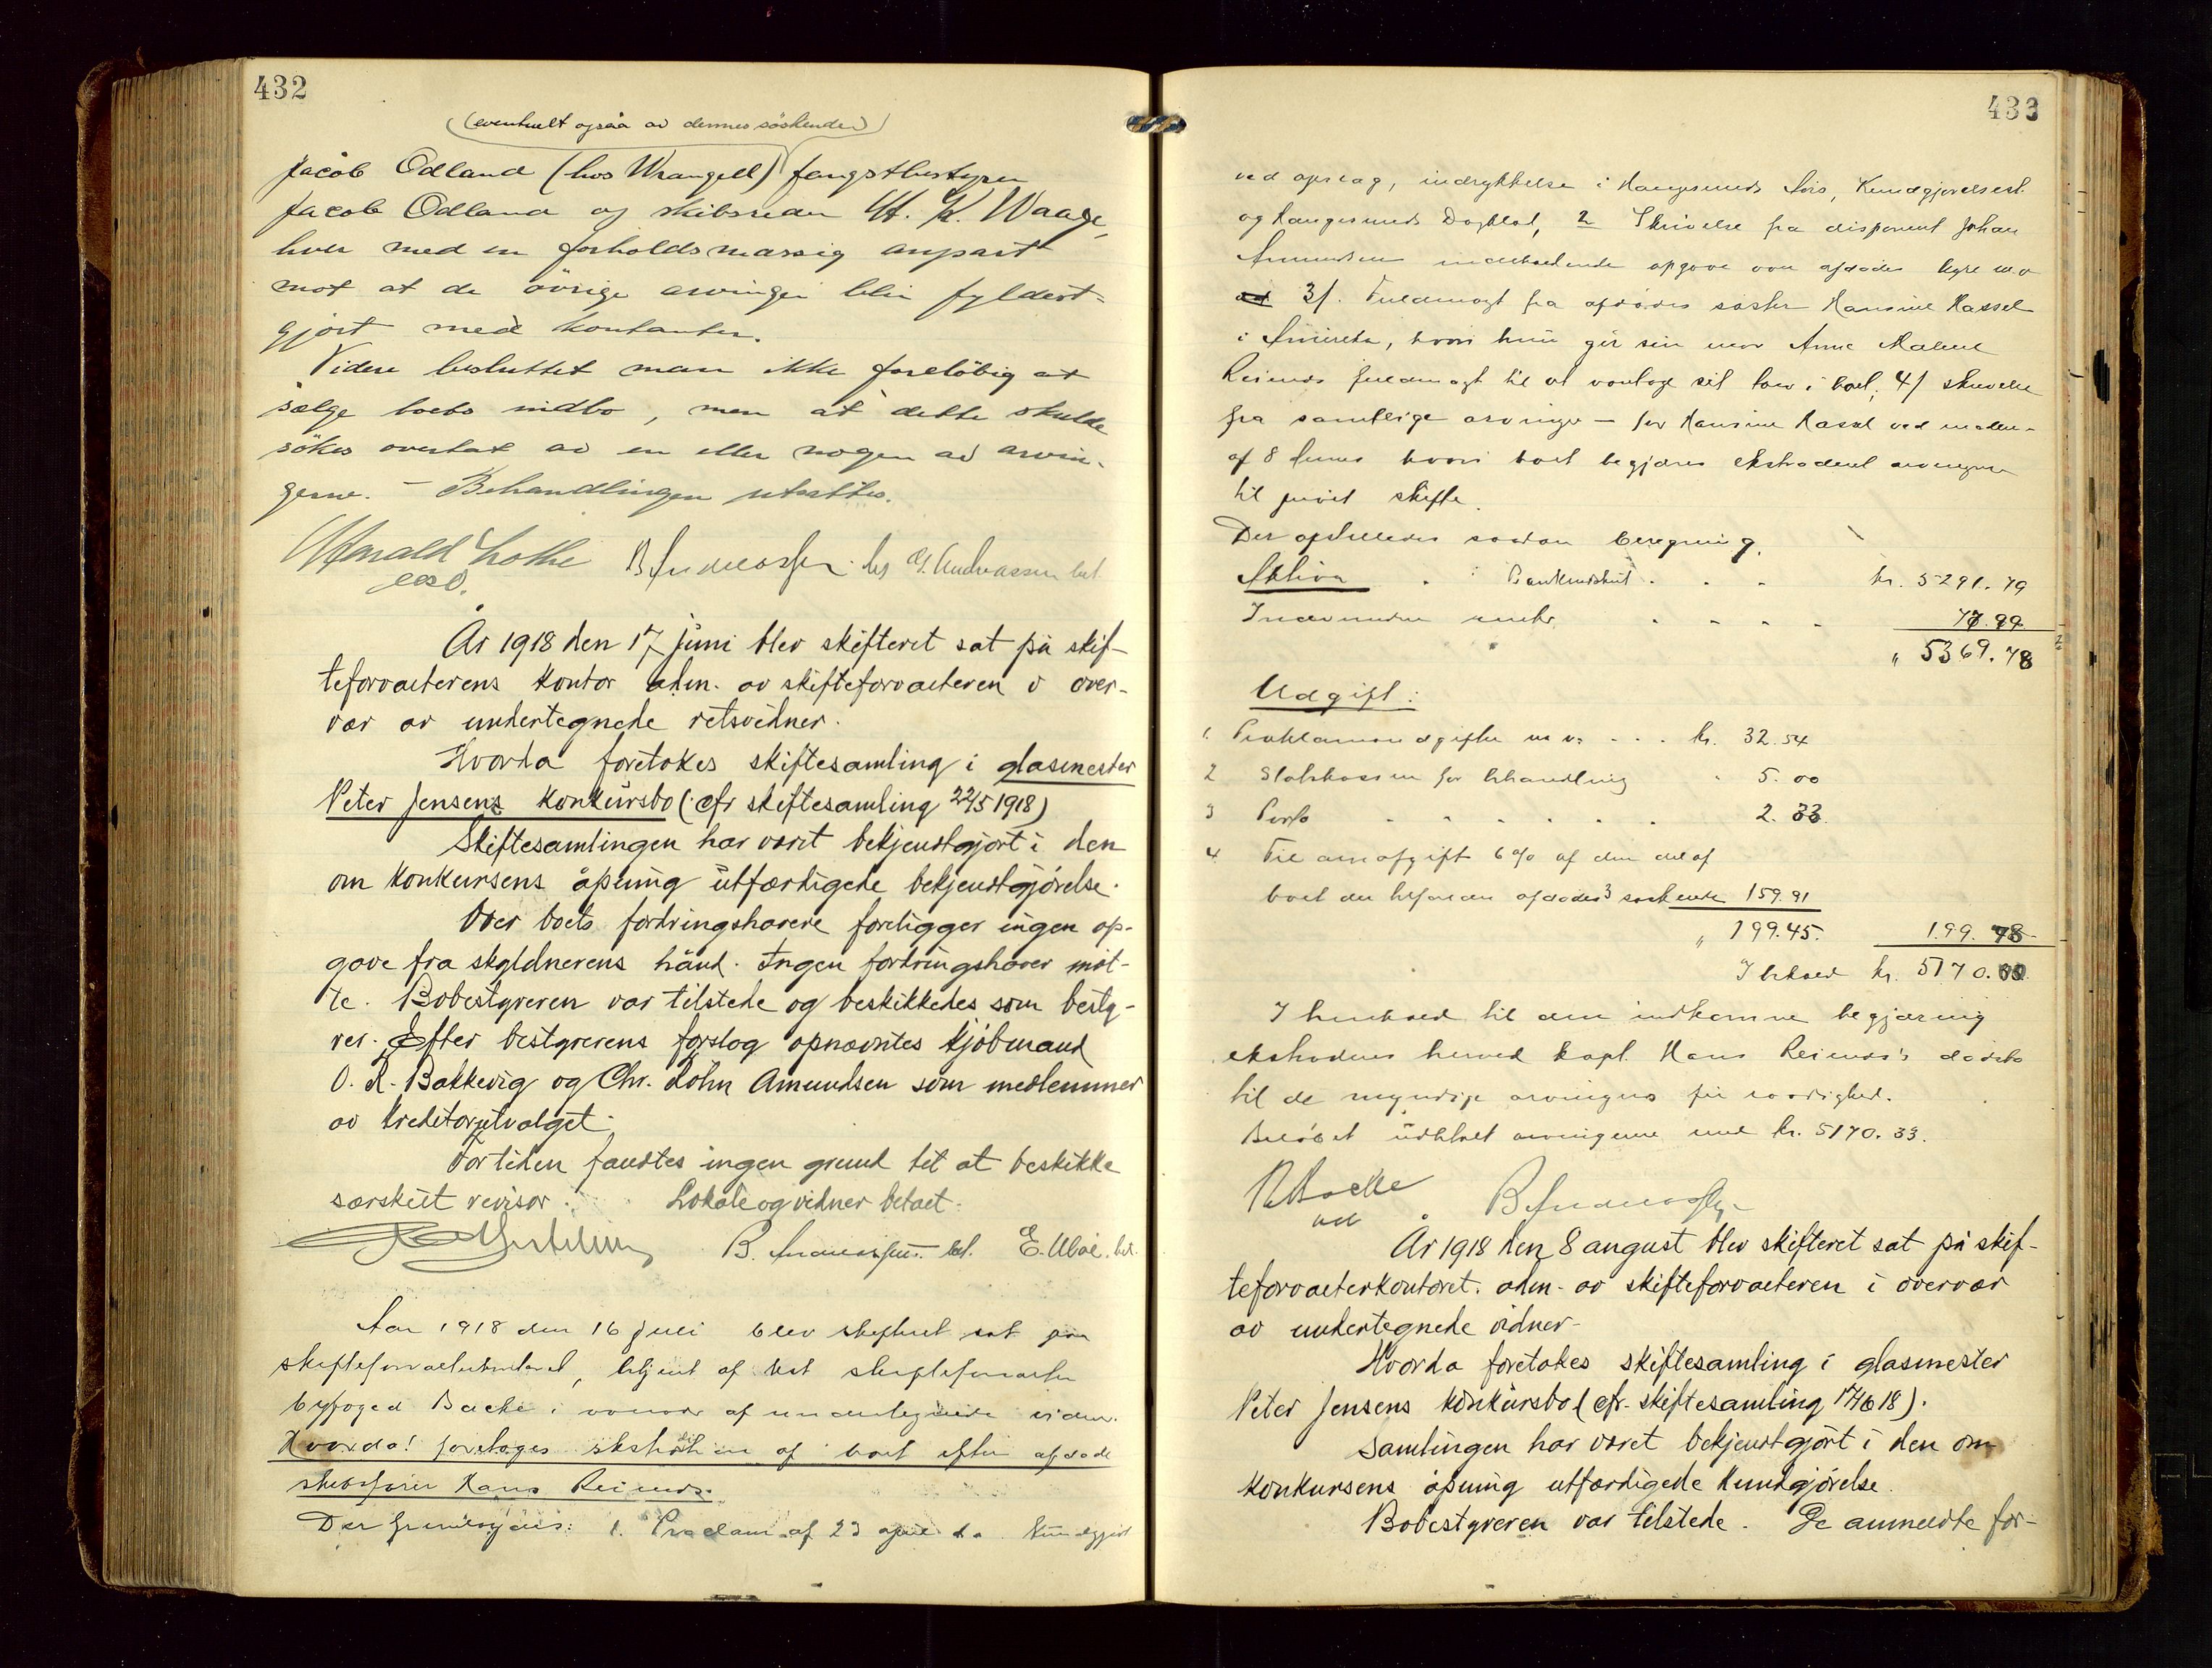 432
(eventuelt også av dennes søskende)
Jacob Odland (hos Wrangell) fangstbestyrer
Jacob Odland og skibsreder H. K. Waage,
hver med en forholdsmæssig anpart
mot at de øvrige arvinger blir fyldest-
gjort med kontanter.
Videre besluttet man ikke foreløbig at
sælge boets indbo, men at dette skulde
søkes overtat av en eller nogen av arvin-
gerne. – Behandlingen utsattes.
Harald Lothe B. Andreassen. bet G. Andreassen bet
cst.
År 1918 den 17 juni blev skifteret sat på skif-
teforvalterens kontor adm. av skifteforvalteren i over-
vær av undertegnede retsvidner.
Hvorda foretokes skiftesamling i glasmester
Peter Jensens konkursbo (cfr skiftesamling 22/5 1918)
Skiftesamlingen har været bekjendtgjort i den
om konkursens åpning utfærdigede bekjendtgjørelse.
Over boets fordringshavere foreligger ingen op-
gave fra skyldnerens hånd. Ingen fordringshaver møt-
te. Bobestyreren var tilstede og beskikkedes som besty-
rer. Efter bestyrerens forslag opnævntes kjøbmand
O. R. Bakkevig og Chr. Lohn Amundsen som medlemmer
av kreditorutvalget.
For tiden fandtes ingen grund til at beskikke
særskilt revisor. Lokale og vidner betalt.
B. Andreassen. bet. E. Uboe. bet.
Aar 1918 den 16 juli blev skifteret sat paa
skifteforvalterkontoret, betjent af kst skifteforvalter
byfoged Backe i overvær af undertegnede vidner.
Hvorda! foretoges ekstradition af boet efter afdøde
skibsfører Hans Reimers.
Der fremlagdes: 1. Proclam af 23 april d.a. kundgjort
433
ved opslag, indrykkelse i Haugesunds Avis, Kundgjørelsest.
og Haugesunds Dagblad, 2 Skrivelse fra disponent Johan
Amundsen indeholdende opgave over afdødes hyre m.v
3/. Fuldmagt fra afdødes søster Hansine Hassel
i Amerika, hvori hun gir sin mor Anne Malene
Reimers fuldmagt til at vareta sit tarv i boet, 4/ skrivelse
fra samtlige arvinger – for Hansine Hassel ved moderen
af 8 hvori boet begjæres ekstraderet arvingerne
til privat skifte.
Der opstilledes saadan beregning.
Aktiva . . Bankindskud . . . kr. 5291.79
Indvundne renter . . . . 77.99
" 5369.78
Udgift:
1. Proklamaudgifter m v. . . . kr. 32.54
2 Statskassen for behandling " 5.00
3 Porto . . . . . . 2.33.
4 Til arveafgift 6% af den del af
boet der tilfalder afdødes 3 søskende 159.91
" 199.45. 199.78
I behold kr. 5170.00.
I henhold til den indkomne begjæring
ekstraderes herved kapt. Hans Reimers's dødsbo
til de myndige arvinger fri raadighed.
Beløbet utbetalt arvingerne med kr. 5170.33.
Backe B. Andreassen
cst
År 1918 den 8 august blev skifteret sat på skif-
teforvalterkontoret. adm. av skifteforvalteren i overvær
av undertegnede vidner.
Hvorda foretokes skiftesamling i glasmester
Peter Jensens konkursbo (cfr. skiftesamling 17/6 18).
Samlingen har været bekjendtgjort i den om
konkursens åpning utfærdigede kundgjørelse.
Bobestyreren var tilstede. De anmeldte for-